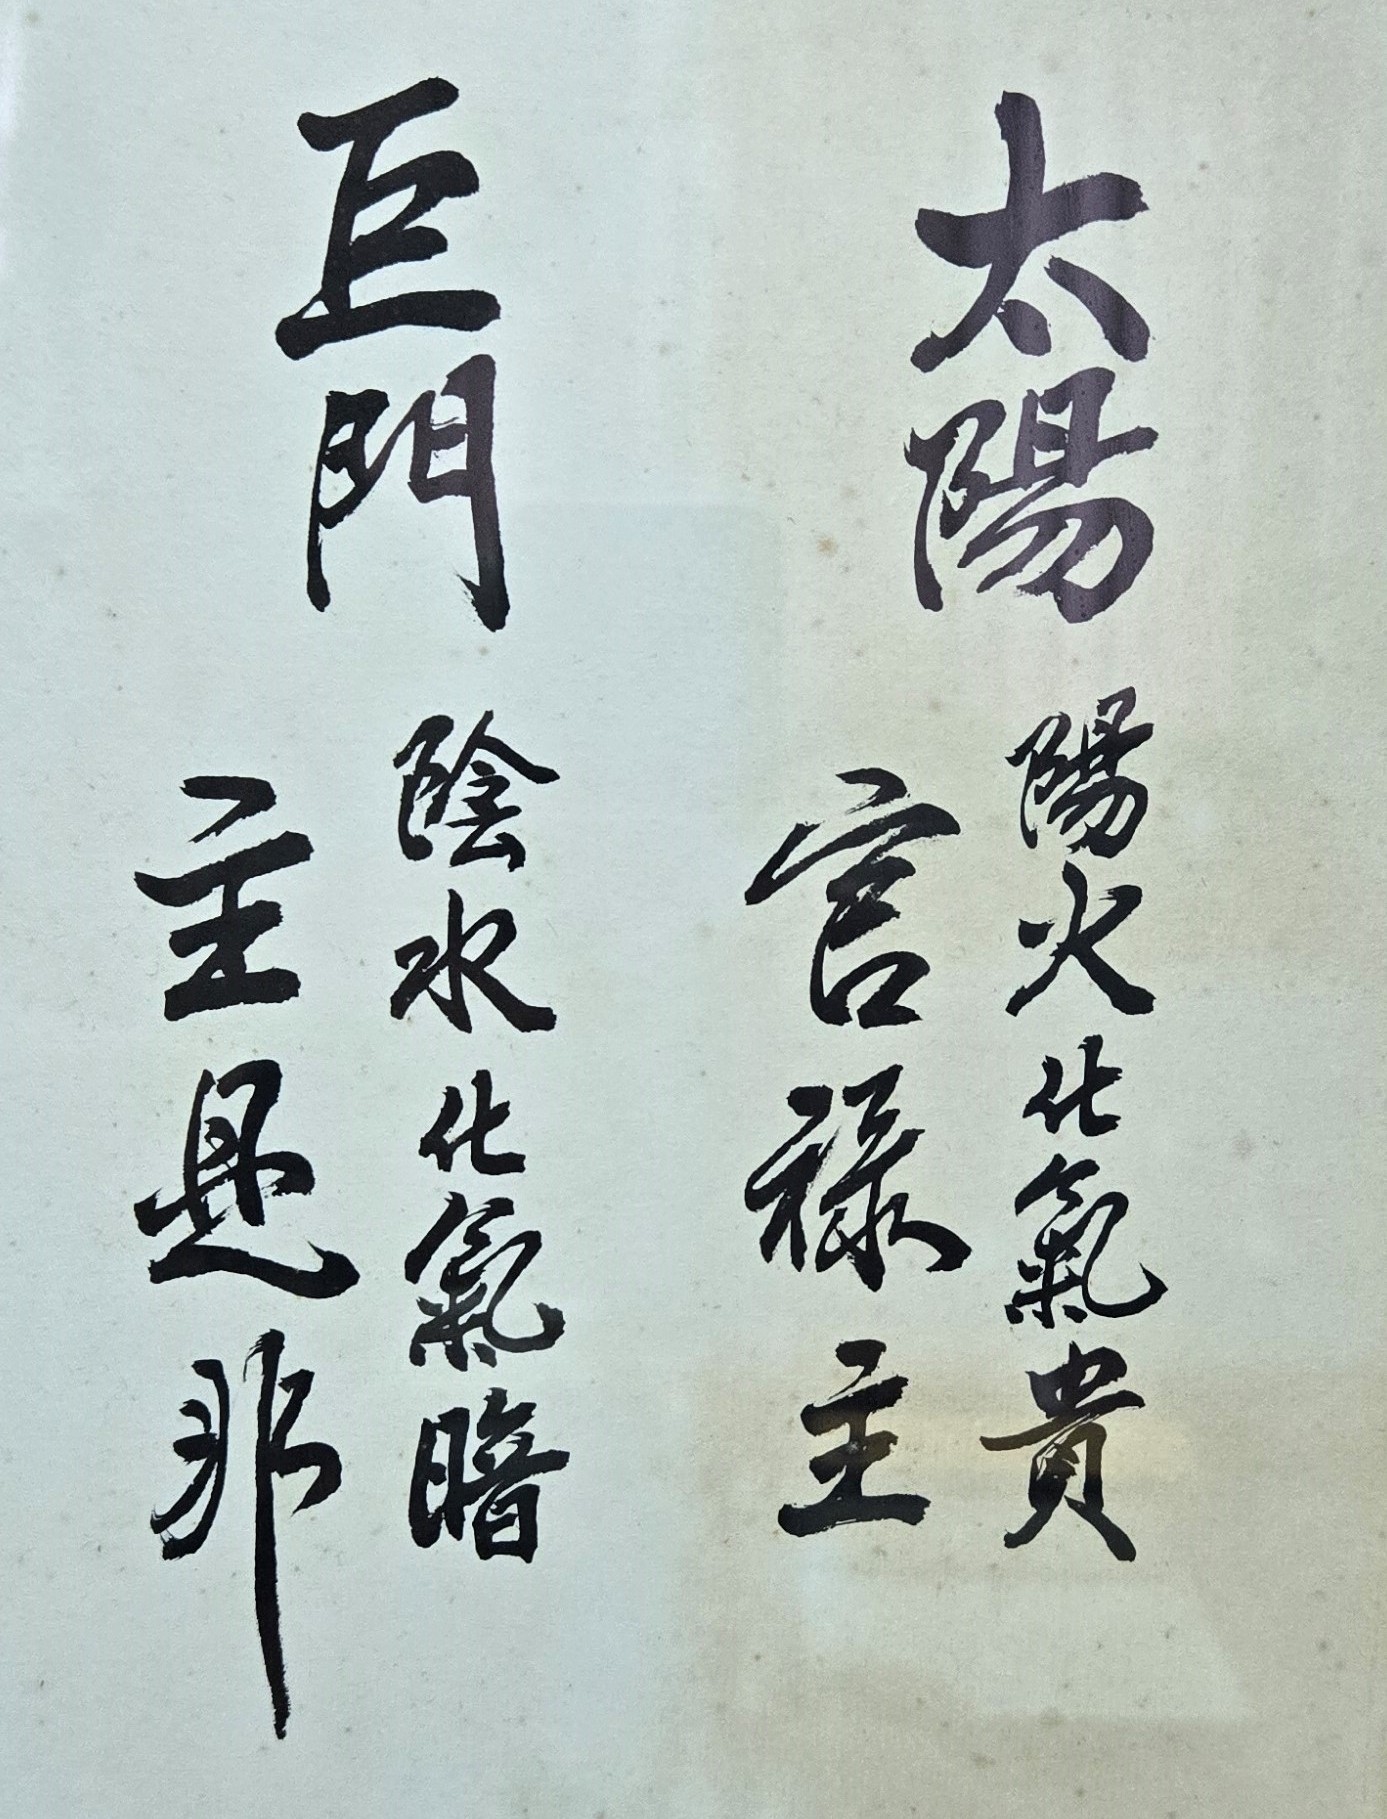 太陽
陽火化氣貴
官祿主
巨門
陰水化氣暗
主是非